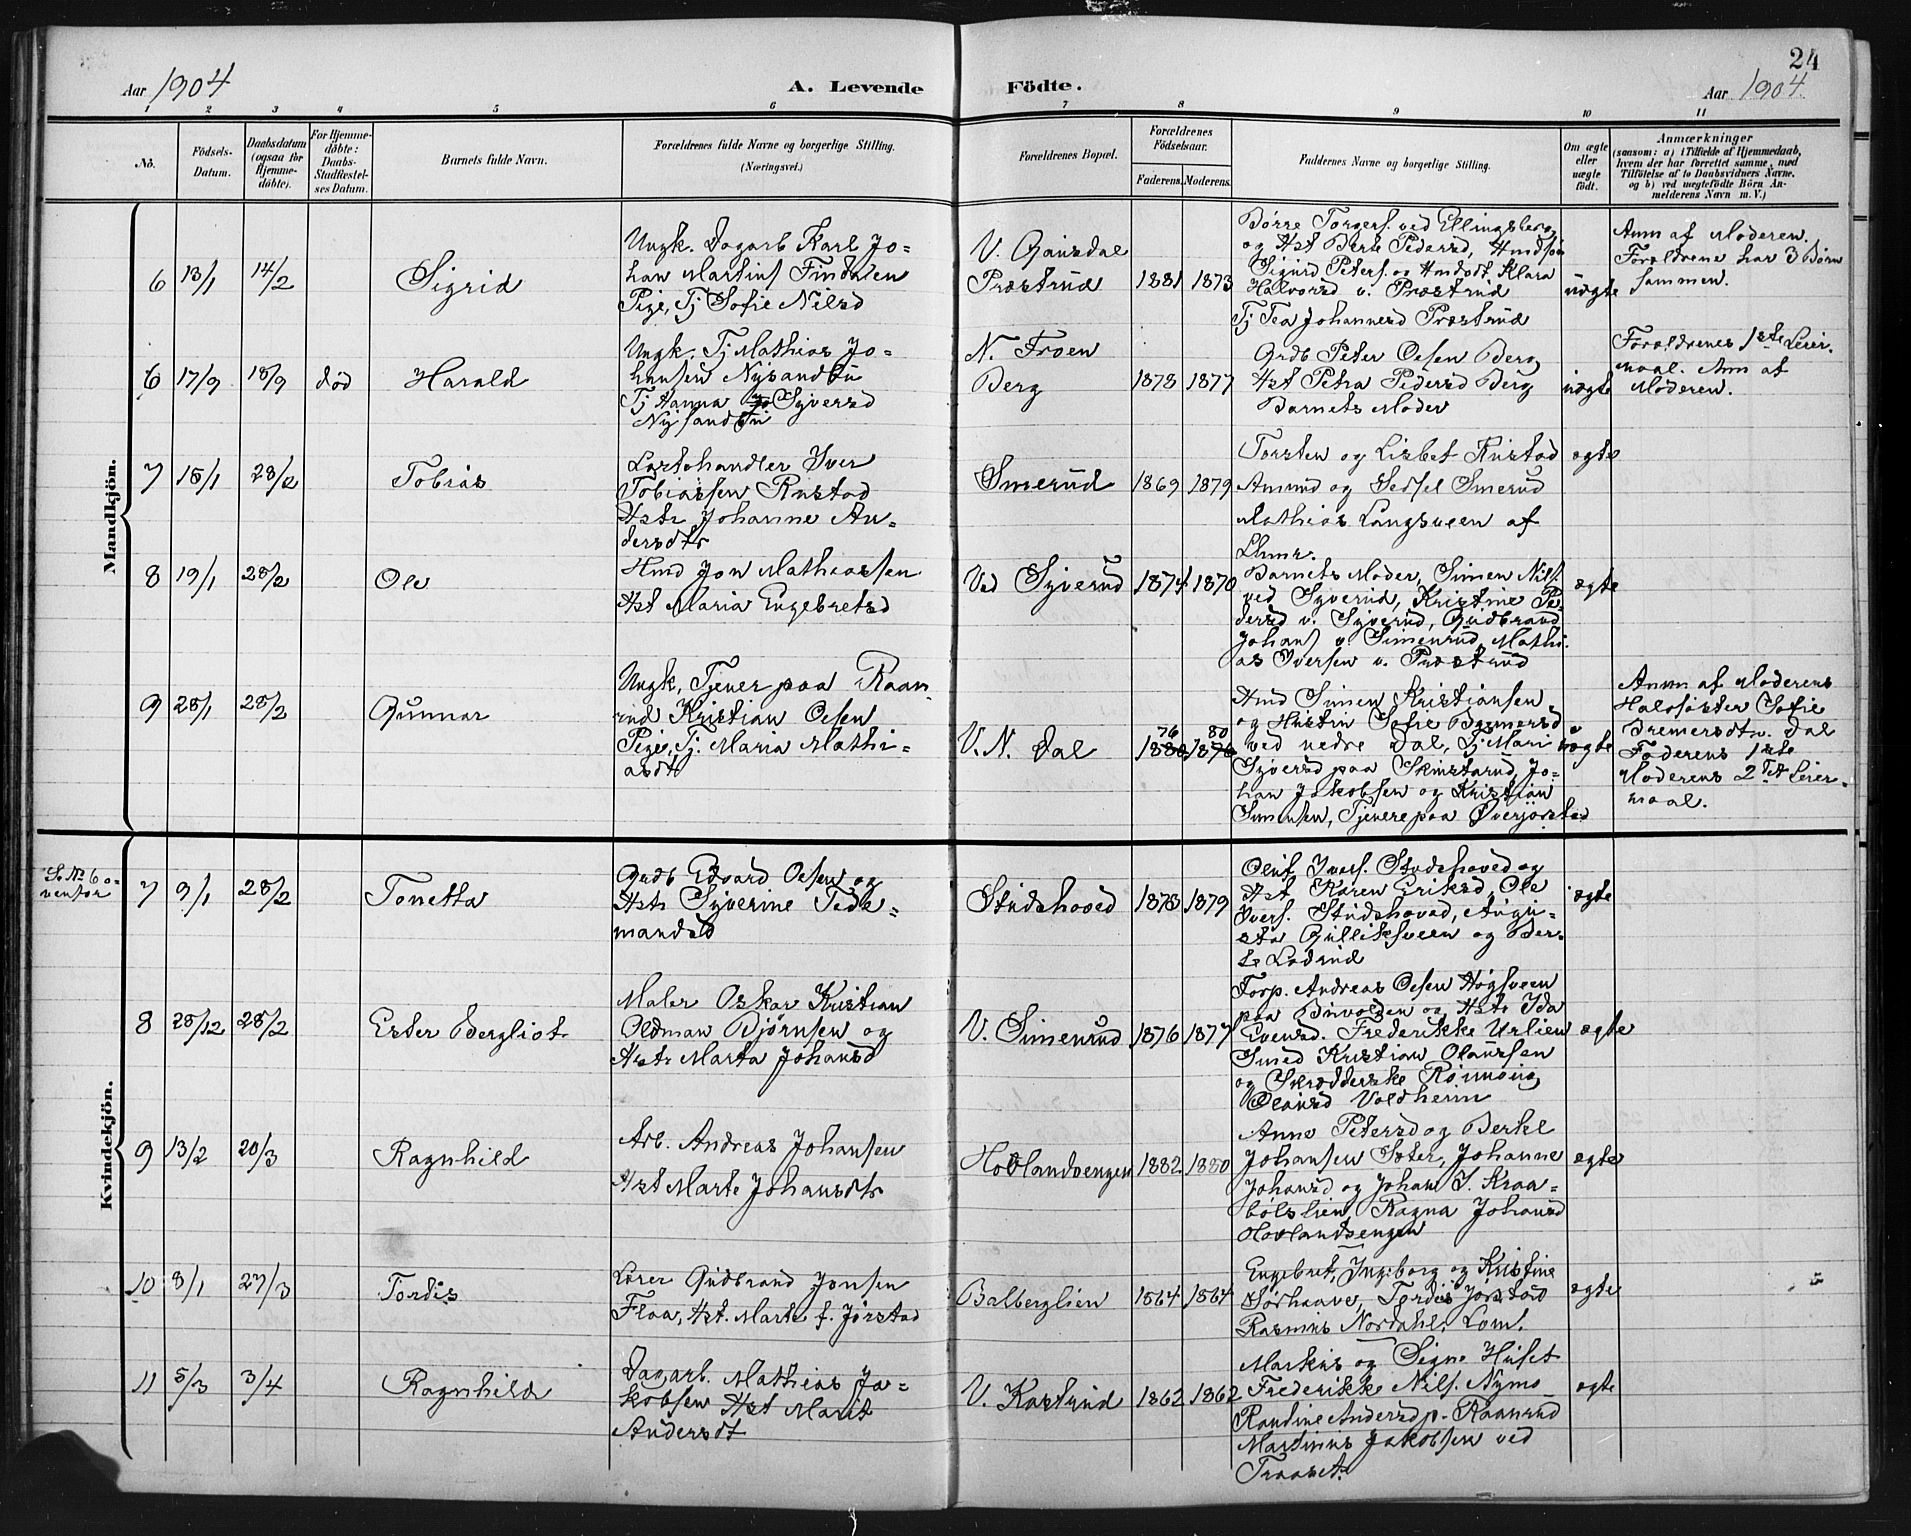 24
Aar 1904
A. Levende Födte.
Aar 1904.
1 2 3 4 5 6 7 8 9 10 11
No.
Födsels-
Datum.
Daabsdatum
(ogsaa for
Hjemme-
döbte).
For Hjemme-
döbte:
Daabs-
Stadfæstel-
ses Datum.
Barnets fulde Navn.
Forældrenes fulde Navne og borgerlige Stilling.
(Næringsvei.)
Forældrenes Bopæl.
Forældrenes
Födselsaar.
Faderens. Moderens.
Faddernes Navne og borgerlige Stilling.
Om ægte
eller
uægte
födt.
Anmærkninger
(saasom: a) i Tilfælde af Hjemmedaab,
hvem der har forrettet samme, med
Tilföielse af to Daabsvidners Navne.
og b) ved uægtefödte Börn An-
melderens Navn m. V.)
Mandkjön.
6 13/1 14/2
Sigrid
Ungk. Dagarb Karl Jo-
han Martins Findalen
Pige, Tj Sofie Nilsd
Præstrud
1881 1873
Børre Torgers. ved Ellingsberg
og Hst Berte Pedersd,
Sigurd Peters. og Klara
Halvorsd v. Præstrud
Tj Tea Johannesd Præstrud
uægte
Anm af Moderen.
Forældrene har 3 Børn
sammen.
6 17/9 18/9 død
Harald
Ungk. Tj Mathias Jo-
hansen Nysandbu
Tj Hanna Syversd
Nysandbu
N. Froen
Berg
1878 1877
Grdb Peter Olsen Berg
Hst Petra Pedersd Berg
Barnets Moder
uægte
Forældrenes 1ste Leier-
maal. Anm af
Moderen.
7 15/1 28/2
Tobias
Lastehandler Iver
Tobiassen Rustad
Hstr Johanne An-
dersdtr
Smerud
1869 1879
Torsten og Lisbet Rustad
Amund og Sedsel Smerud
Mathias Langsveen af
Lhmr.
ægte
8 19/1 28/2
Ole
Hmd Jon Mathiassen
Hst Maria Engebretsd
Ved Syverud
1874 1870
Barnets Moder, Simen Nils.
ved Syverud, Kristine Pe-
dersd v. Syverud, Gudbrand
Johans v. Simenrud, Mathi-
as Iversen v. Præstrud
ægte
9 28/1 28/2
Gunnar
Ungk, Tjener paa Raan-
rud Kristian Olsen
Pige, Tj. Maria Mathi-
asdt
V. N. Dal
76 80
1880 1876
Hmd Simen Kristiansen
og Hustru Sofie
ved nedre Dal, Tj Mari
Syversd paa Skustarud, Jo-
han Jakobsen og Kristian
Simensen, Tjenere paa Øverjørstad
uægte
Anm af Moderens
Halvsøster Sofie
Bremersdt v. Dal
Faderens 1ste
Moderens 2det Leier-
maal.
Kvindekjön.
S. No 6 o-
venfor
7 9/1 28/2
Tonetta
Grdb Edvard Olsen og
Hstr Syverine Tide-
mandsd
Studshoved
1878 1879
Oluf Ivers. Studshoved og
Hst Karen Eriksd, Ole
Ivers. Studshoved, Augu-
sta Gulliksveen og Ber-
te Lodrud
ægte
8 28/12 28/2
Ester Bergliot
Maler Oskar Kristian
Oldman Bjørnsen og
Hstr Marta Johansd
V. Simenrud
1876 1877
Torp. Andreas Olsen Høgsveen
paa Buvolden og Hstr Ida
Evensd. Frederikke Urlien
Smed Kristian Olaussen
og Skrædderske
Olausd Valdheim
ægte
9 13/2 20/3
Ragnhild
Arb. Andreas Johansen
Hst Marte Johansdtr
Hovlandsengen
1882 1880
Anne Petersd og Bertel
Johansen Sæter, Johanne
Johansd og Johan J. Kraa-
bølslien Ragna Johansd
Hovlandsengen
ægte
10 8/1 27/3
Tordis
Lærer Gudbrand Jonsen
Flaa, Hst. Marte f. Jørstad
Balberglien
1864 1864
Engebret, Ingeborg og Kristine
Sørhaave, Tordis Jørstad
Rasmus Nordahl, Lom.
ægte
11 5/3 3/4
Ragnhild
Dagarb. Mathias Ja-
kobsen Hst Marit
Andersdt
V. Kastrud
1862 1862
Markus og Signe Huset
Frederikke Nils. Nymo
Randine Andersd p. Raanrud
Martinus Jakobsen ved
Traaset.
ægte